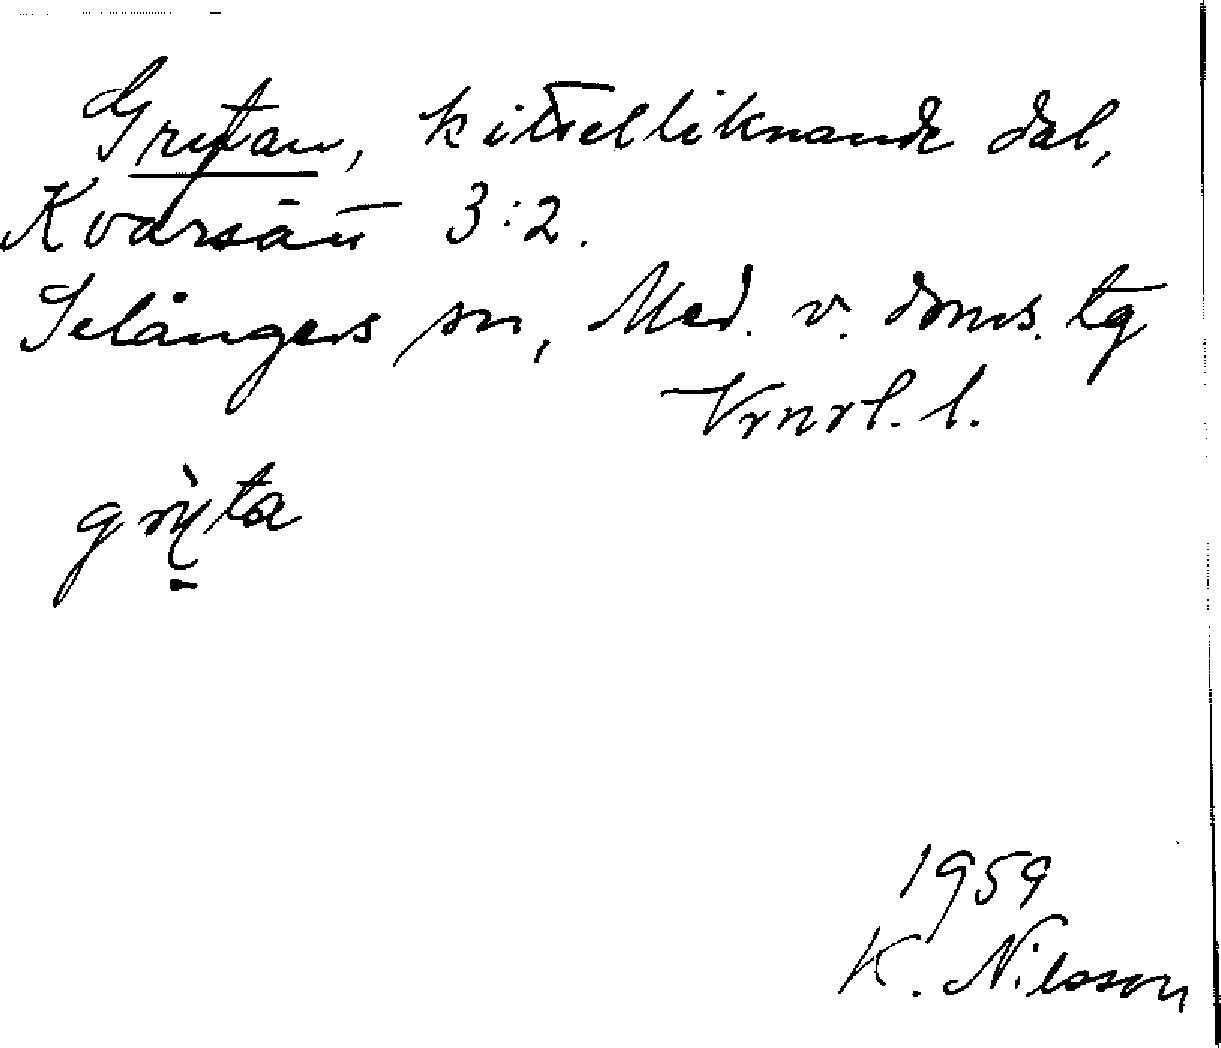 Grytan, kittelliknande dal,
Kvarsätt 3:2.
Selångers sn, Med. v. doms. tg
Vrnrl. l.
grỳta
1959
K. Nilsson